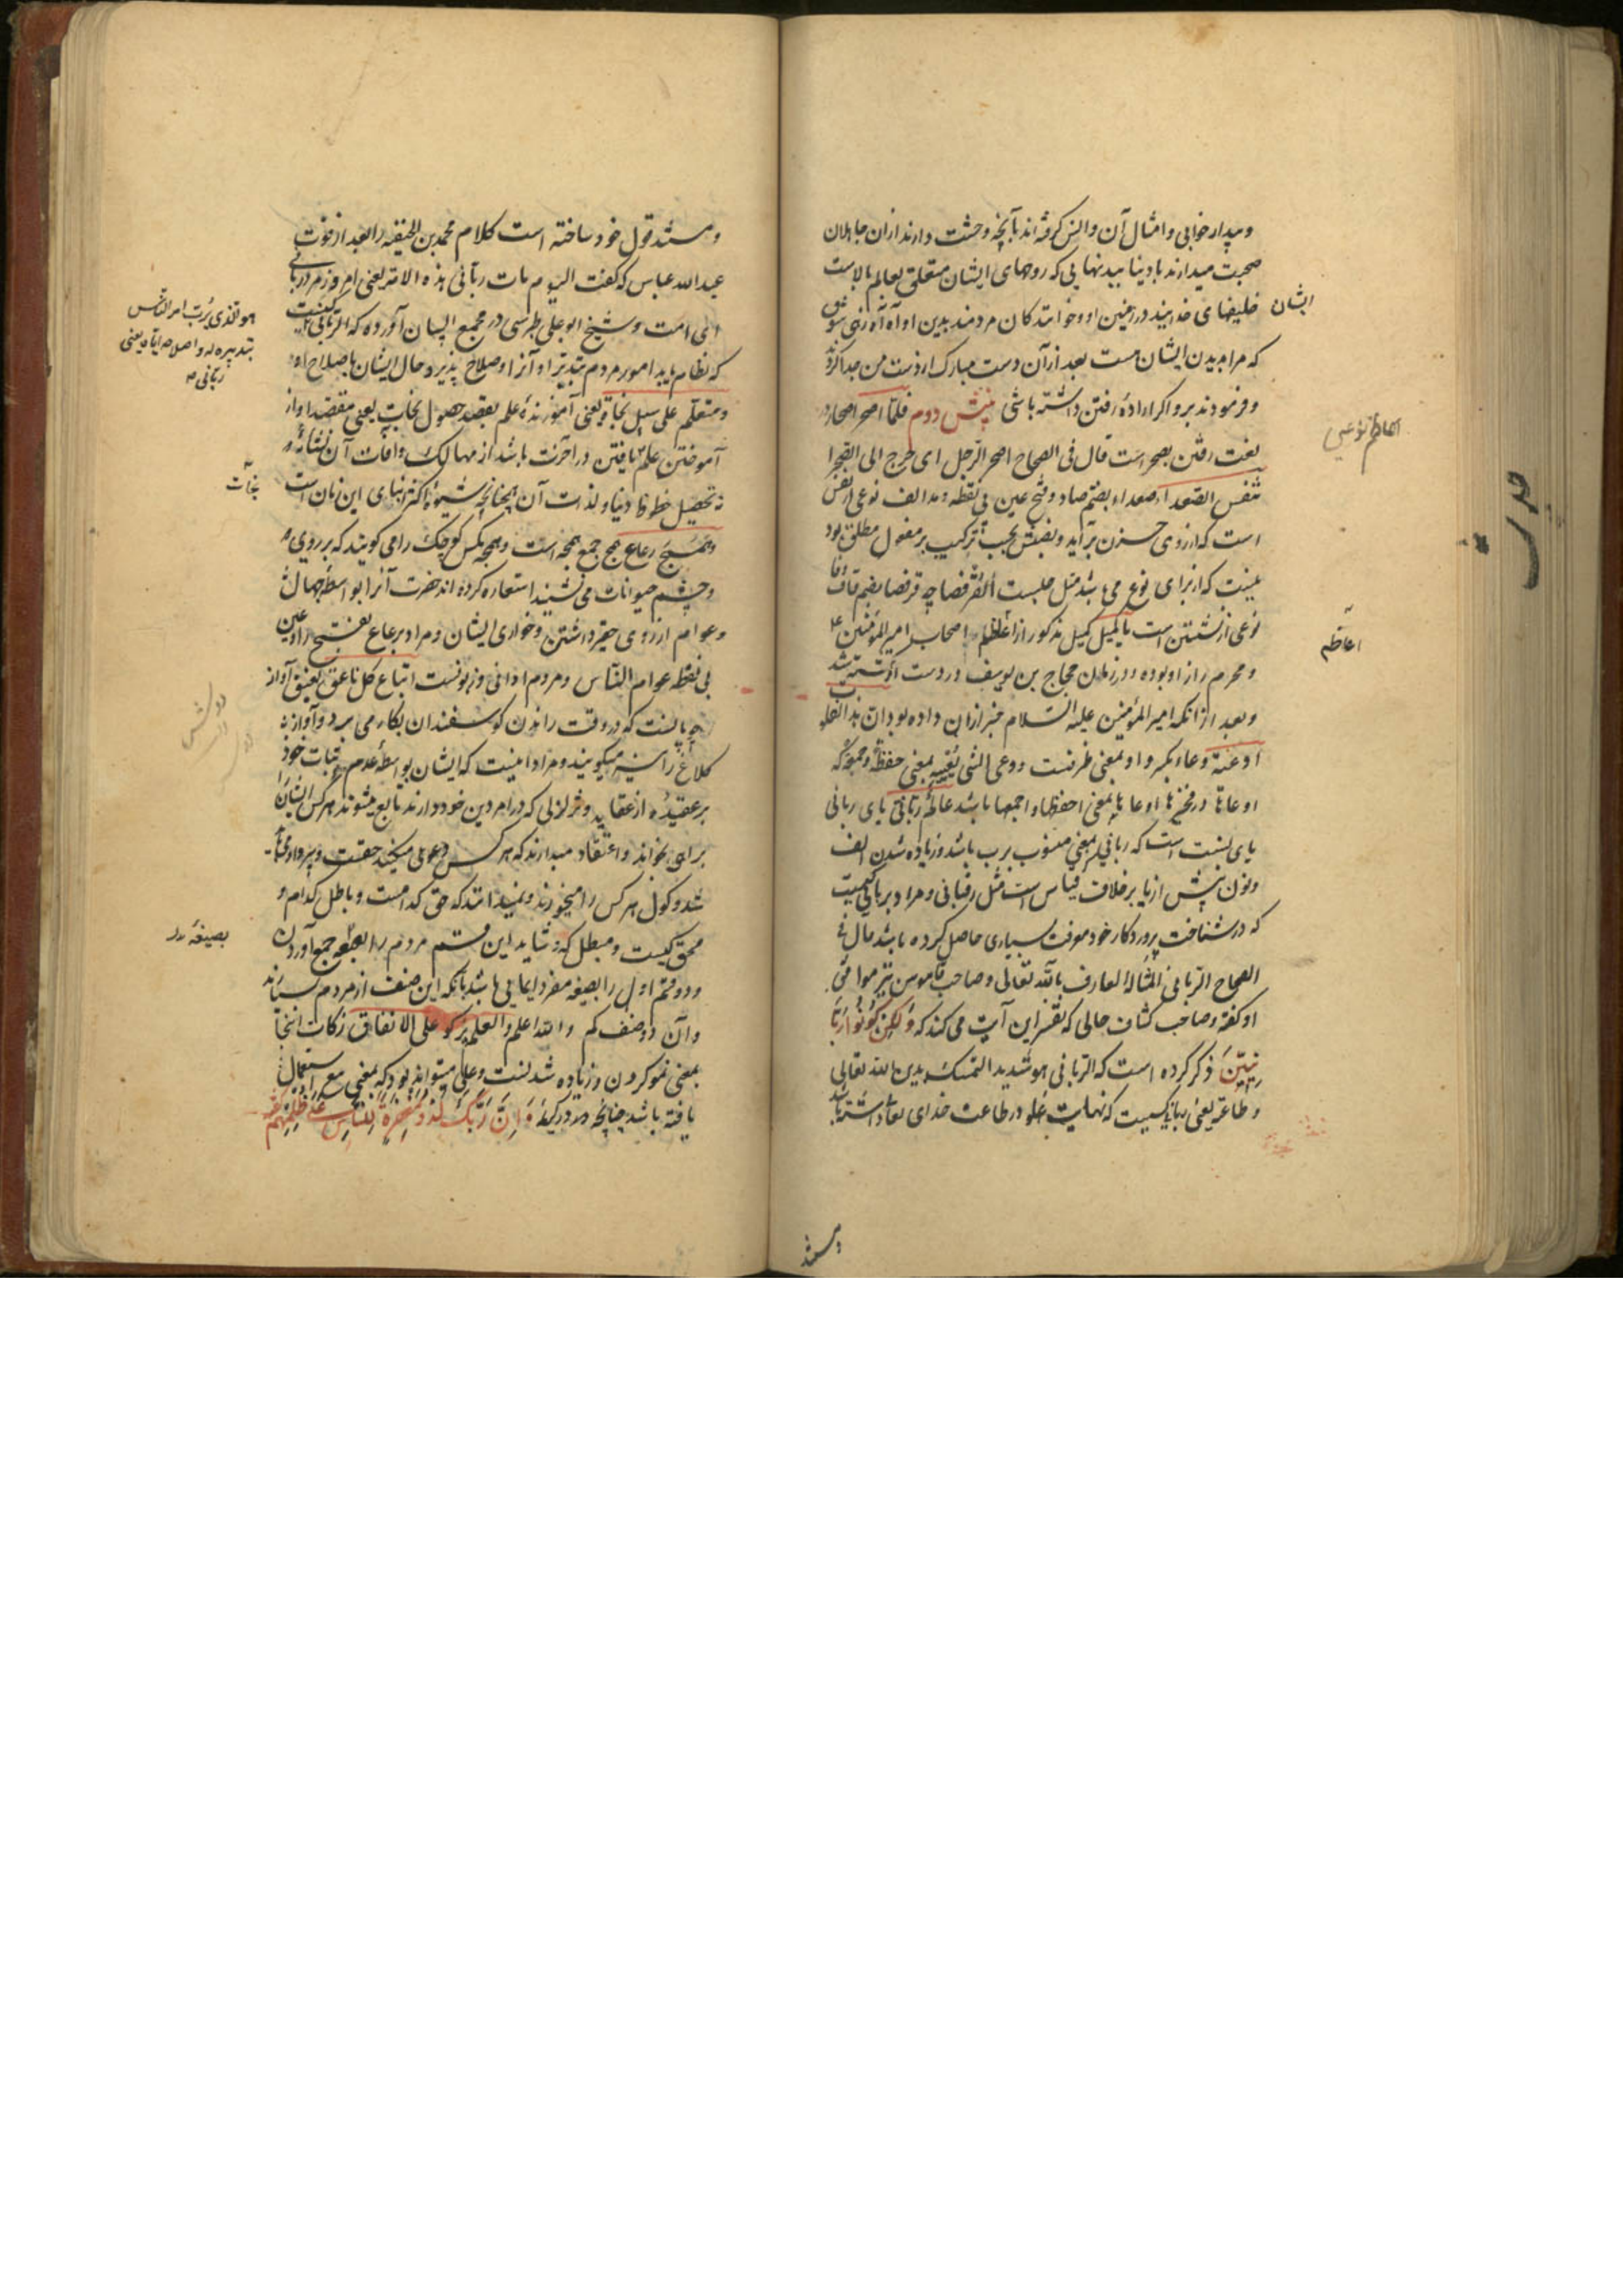 وبیدار خوابی وامثال آن وانس گرفته اند بآنچه وحشت دارند ازان جاهلان
صحبت میدارند با دنیا ببدنهایی که روحهای ایشان متعلق بعالم بالاست
ایشان
خلیفهای خدایند در زمین او وخوانندکان مردمند بدین او آه آه زهی شوق
که مرا بدیدن ایشان هست بعد از آن دست مبارک از دست من جدا کرد
وفرمودند برو اگر اراده رفتن داشته باشی بینش دوم فلما اصحر اصحار در
لغت رفتن بصحراست قال فی الصحاح اصحر الرجل ای خرج الی الصحرا
تنفس الصعداء صعداء بضم صاد وفتح عین بی نقطه ومد الف نوعی از نفس
است که از روی حزن برآید ونصبش بحسب ترکیب بر مفعول مطلق بود
نیست که از برای نوع می باشد مثل جلست القرفصا چه قرفصا بضم قاف وفا
نوعی از نشستن است یا کمیل کمیل مذکور از اعاظم اصحاب امیر المؤمنین ع
اعاظم
ومحرم راز او بوده ودر زمان حجاج بن یوسف در دست او شهید شد
وبعد از آنکه امیر المؤمنین علیه السلام خبر ازان داده بود ان هذه القلوب
اوعیة وعاء بکسر واو بمعنی ظرفست ووعی الشی یعیه بمعنی حفظه وجمعه که
اوعاها در فخیرها اوعاها بمعنی احفظها واجمعها باشد عالم ربانی یای ربانی
یای نسبت است که ربانی بمعنی منسوب برب باشد وزیاده شدن الف
ونون پیش از یا بر خلاف قیاس است مثل رقبانی ومراد بربانی کسیست
که در شناخت پروردکار خود معرفت بسیاری حاصل کرده باشد قال فی
الصحاح الربانی المتاله العارف بالله تعالی وصاحب قاموس نیز موافق
او گفته وصاحب کشاف جائی که تفسیر این آیت می کند که ولکن کونوا ربا
نیین ذکر کرده است که الربانی هو شدید التمسک بدین الله تعالی
وطاعته یعنی ربانی کسیست که نهایت غلو در طاعت خدای تعالی داشته باشد
ومستند
ومستند قول خود ساخته است کلام محمد بن الحنفیه را بعد از فوت
عبد الله عباس که گفت الیوم مات ربانی هذه الامة یعنی امروز مرد ربانی
این امت وشیخ ابو علی طبرسی در مجمع البیان آورده که الربانی کسیست
هو الذی یرب امر الناس
بتدبیره له واصلاحه ایاه یعنی
ربانی
که نظام یابد امور مردم بتدبیر او آنرا وصلاح پذیرد حال ایشان باصلاح او
ومتعلم علی سبیل نجاة یعنی آموزنده علم بقصد حصول نجات یعنی مقصد او از
آموختن علم یافتن در آخرت باشد از مهالک وآفات آن نشاه
نجات
نه تحصیل حظوظ دنیا ولذات آن چنانچه شیوه اکثر ابنای این زمان است
وهمج رعاع همج جمع همجه است وهمجه مکس کوچک را می کویند که بر روی
وچشم حیوانات می نشیند استعاره کرده اند حضرت آنرا بواسطه جهال
وعوام از روی حقیر داشتن وخواری ایشان ومراد برعاع بفتح را وعین
بی نقطه عوام الناس ومردم ادانی وزبونست اتباع کل ناعق نعیق آواز
چوپانست که در وقت راندن کوسفندان بکار می برد وآواز
کلاغ را نیز میکویند ومراد اینست که ایشان بواسطه عدم ثبات خود
بر عقیده از عقاید وتزلزلی که در امر دین خود دارند تابع میشوند هر کس ایشان را
براهی بخواند واعتقاد میدارند که هر کس دعوی میکند حقست
شد وکول هر کس را میخورند ونمیدانند که حق کدامست وباطل کدام و
محق کیست ومبطل که وشاید این قسم مردم را بصیغه جمع آوردن
بصیغه
ودو قسم اول را بصیغه مفرد ایمایی باشد بآنکه این صنف از مردم بسیارند
وآن دو صنف کم والله اعلم والعلم یزکو علی الانفاق زکات اینجا
بمعنی نمو کردن وزیاده شدنست وعلی میتواند بود که بمعنی مع استعمال
یافته باشد چنانچه در کریمه وان ربک لذو مغفرة للناس علی ظلمهم